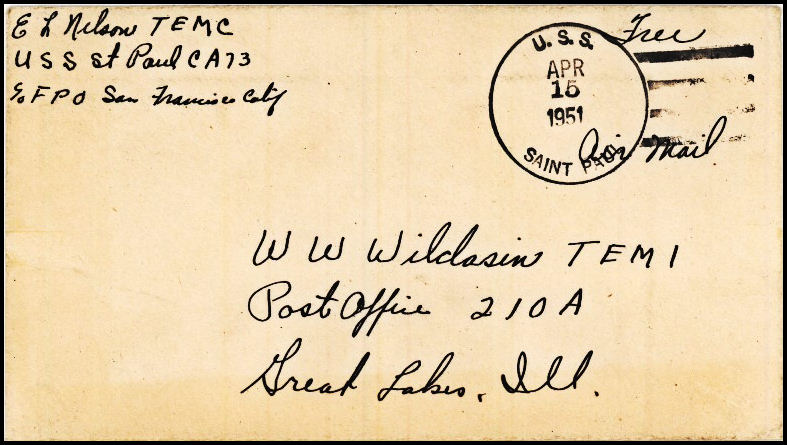 E L Nelson TEMC
USS St Paul CA73
c/o FPO San Francisco Calif
Free
U.S.S.
APR
15
1951
SAINT PAUL
Air Mail
W W Wildasin TEM1
Post Office 210A
Great Lakes, Ill.